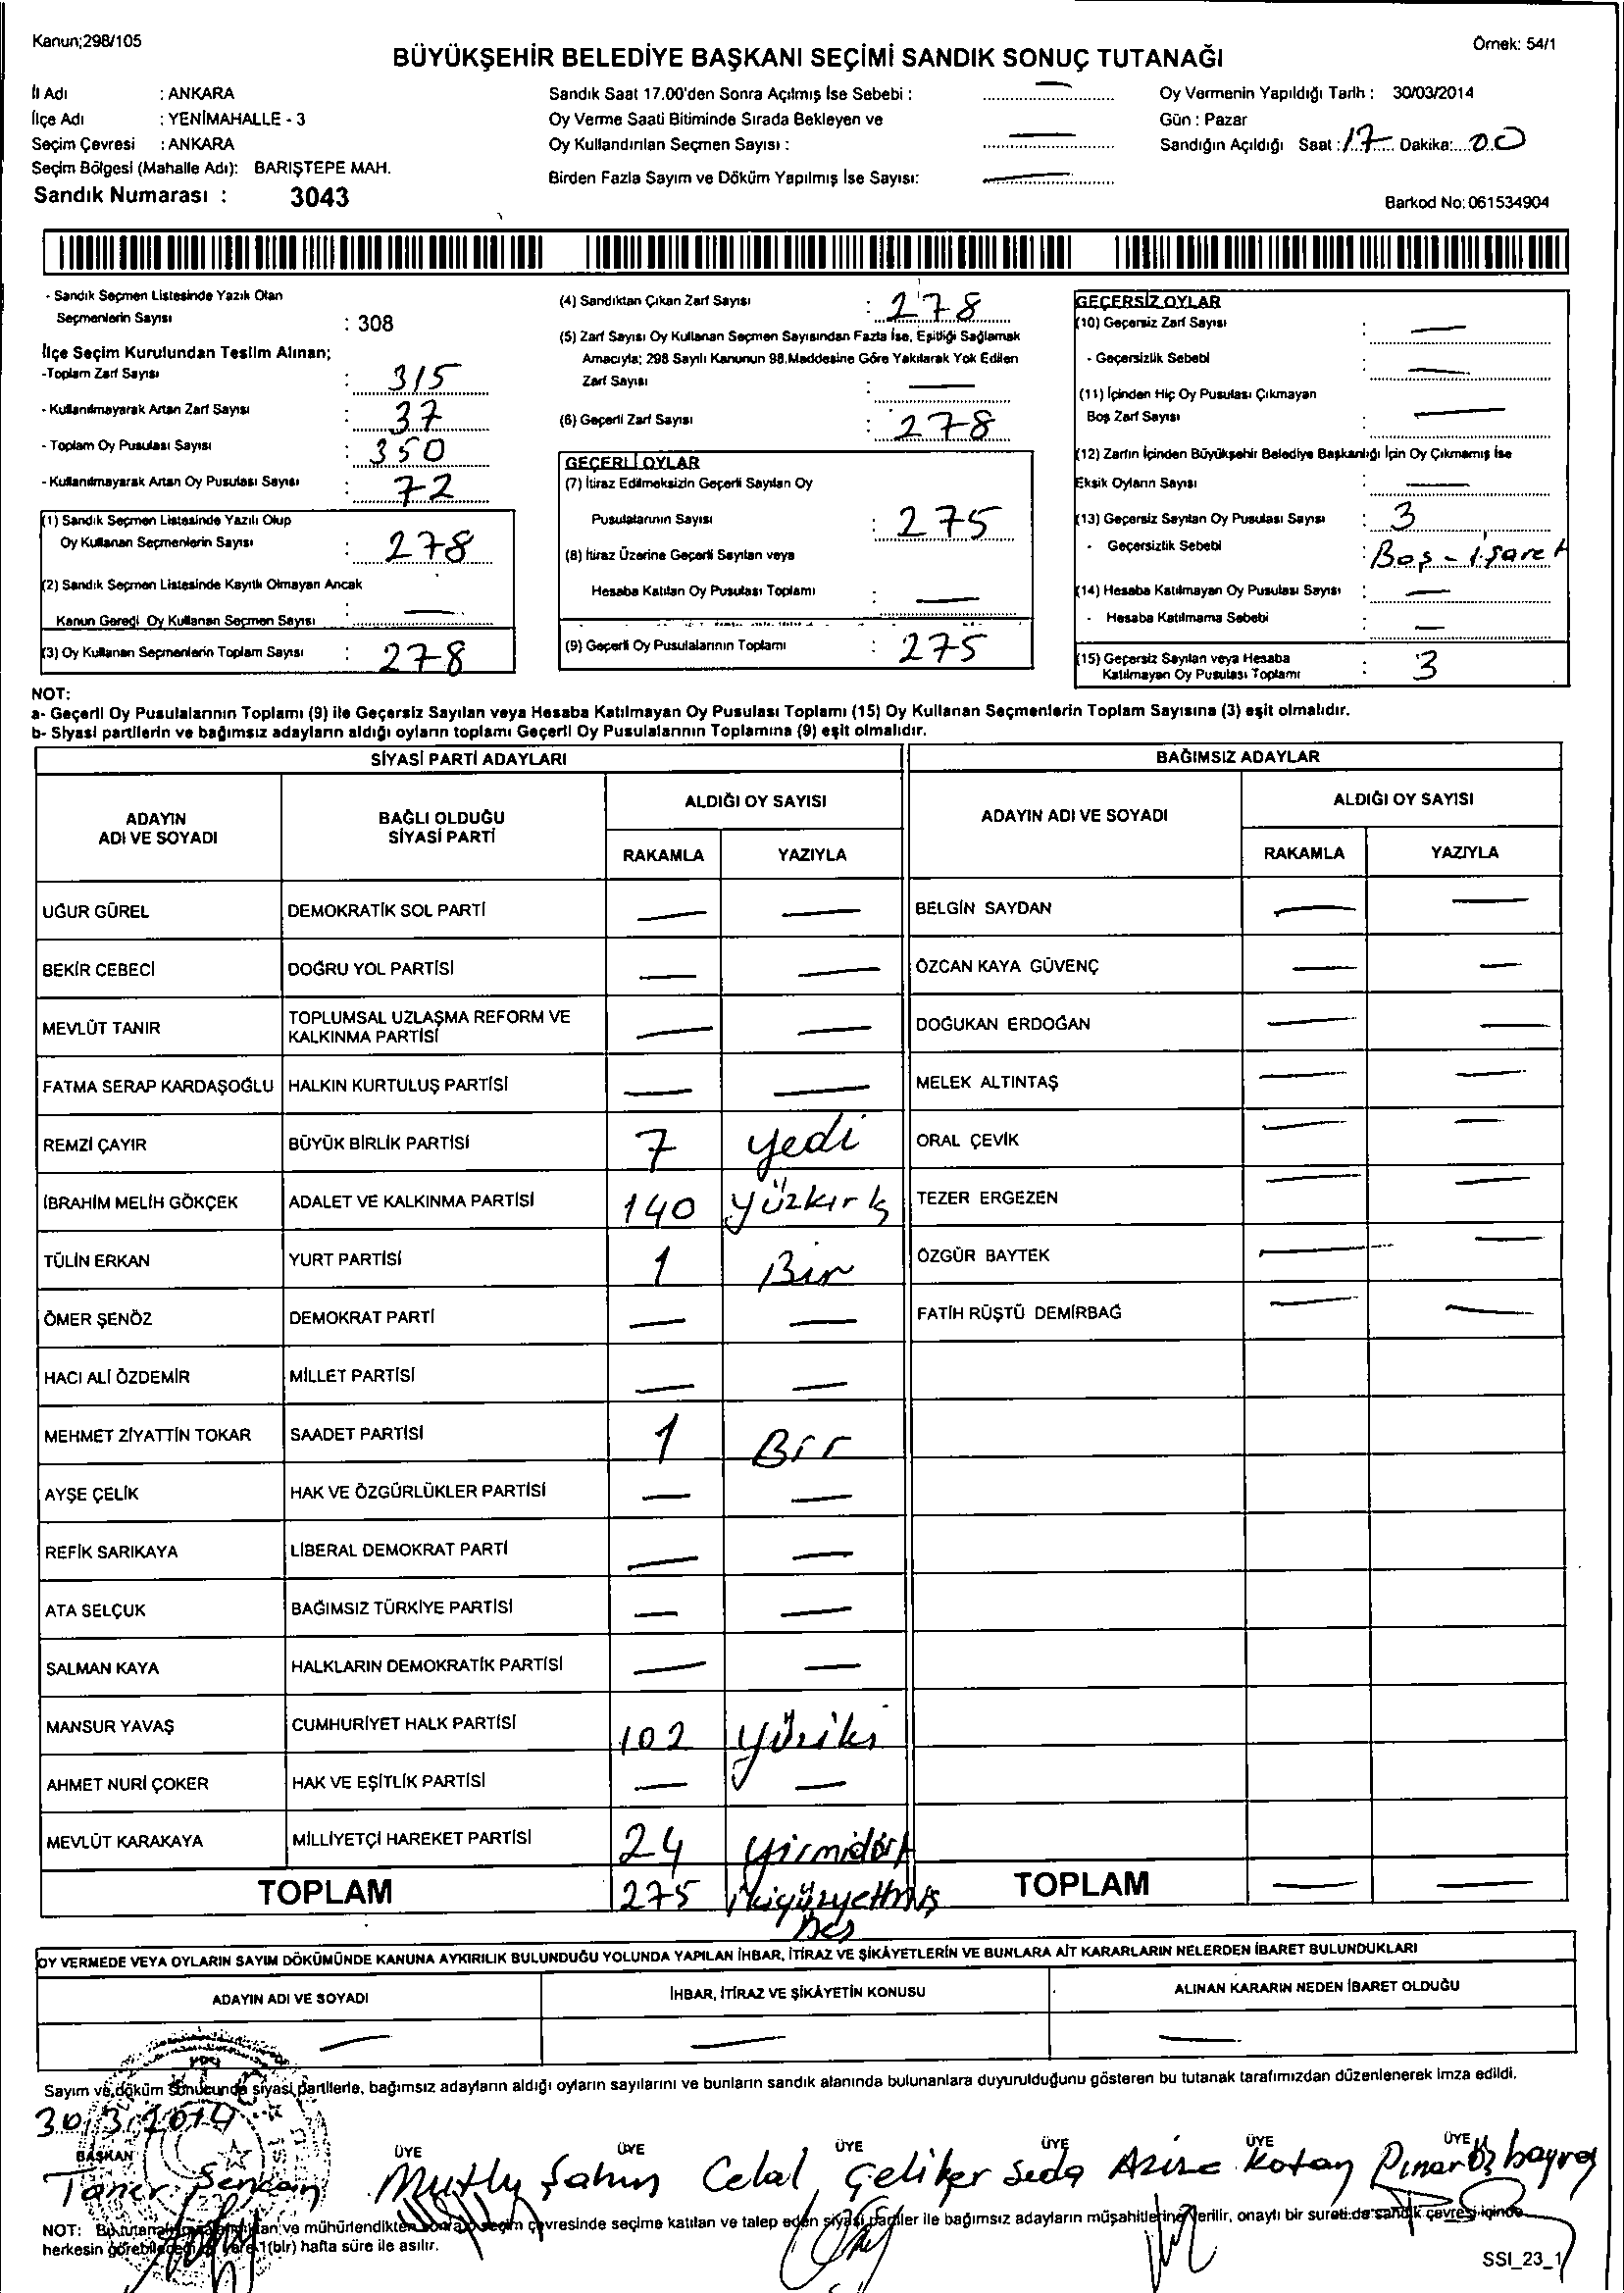 Kanun;298/105
Örnek: 54/1
BÜYÜKŞEHİR BELEDİYE BAŞKANI SEÇİMİ SANDIK SONUÇ TUTANAĞI
İl Adı : ANKARA
İlçe Adı : YENİMAHALLE - 3
Seçim Çevresi : ANKARA
Seçim Bölgesi (Mahalle Adı): BARIŞTEPE MAH.
Sandık Numarası : 3043
Sandık Saat 17.00'den Sonra Açılmış İse Sebebi : —
Oy Verme Saati Bitiminde Sırada Bekleyen ve
Oy Kullandırılan Seçmen Sayısı : —
Birden Fazla Sayım ve Döküm Yapılmış İse Sayısı: —
Oy Vermenin Yapıldığı Tarih : 30/03/2014
Gün : Pazar
Sandığın Açıldığı Saat : 17 Dakika: 00
Barkod No: 061534904
- Sandık Seçmen Listesinde Yazılı Olan
Seçmenlerin Sayısı : 308
İlçe Seçim Kurulundan Teslim Alınan;
-Toplam Zarf Sayısı : 315
- Kullanılmayarak Artan Zarf Sayısı : 37
- Toplam Oy Pusulası Sayısı : 350
- Kullanılmayarak Artan Oy Pusulası Sayısı : 72
(1) Sandık Seçmen Listesinde Yazılı Olup
Oy Kullanan Seçmenlerin Sayısı : 278
(2) Sandık Seçmen Listesinde Kayıtlı Olmayan Ancak
Kanun Gereği Oy Kullanan Seçmen Sayısı : —
(3) Oy Kullanan Seçmenlerin Toplam Sayısı : 278
(4) Sandıktan Çıkan Zarf Sayısı : 278
(5) Zarf Sayısı Oy Kullanan Seçmen Sayısından Fazla İse, Eşitliği Sağlamak
Amacıyla; 298 Sayılı Kanunun 98.Maddesine Göre Yakılarak Yok Edilen
Zarf Sayısı : —
(6) Geçerli Zarf Sayısı : 278
GEÇERLİ OYLAR
(7) İtiraz Edilmeksizin Geçerli Sayılan Oy
Pusulalarının Sayısı : 275
(8) İtiraz Üzerine Geçerli Sayılan veya
Hesaba Katılan Oy Pusulası Toplamı : —
(9) Geçerli Oy Pusulalarının Toplamı : 275
GEÇERSİZ OYLAR
(10) Geçersiz Zarf Sayısı : —
- Geçersizlik Sebebi : —
(11) İçinden Hiç Oy Pusulası Çıkmayan
Boş Zarf Sayısı : —
(12) Zarfın İçinden Büyükşehir Belediye Başkanlığı İçin Oy Çıkmamış İse
Eksik Oyların Sayısı : —
(13) Geçersiz Sayılan Oy Pusulası Sayısı : 3
- Geçersizlik Sebebi : Boş - işaret
(14) Hesaba Katılmayan Oy Pusulası Sayısı : —
- Hesaba Katılmama Sebebi : —
(15) Geçersiz Sayılan veya Hesaba
Katılmayan Oy Pusulası Toplamı : 3
NOT:
a- Geçerli Oy Pusulalarının Toplamı (9) ile Geçersiz Sayılan veya Hesaba Katılmayan Oy Pusulası Toplamı (15) Oy Kullanan Seçmenlerin Toplam Sayısına (3) eşit olmalıdır.
b- Siyasi partilerin ve bağımsız adayların aldığı oyların toplamı Geçerli Oy Pusulalarının Toplamına (9) eşit olmalıdır.
SİYASİ PARTİ ADAYLARI
ADAYIN ADI VE SOYADI
BAĞLI OLDUĞU SİYASİ PARTİ
ALDIĞI OY SAYISI
RAKAMLA YAZIYLA
UĞUR GÜREL DEMOKRATİK SOL PARTİ — —
BEKİR CEBECİ DOĞRU YOL PARTİSİ — —
MEVLÜT TANIR TOPLUMSAL UZLAŞMA REFORM VE KALKINMA PARTİSİ — —
FATMA SERAP KARDAŞOĞLU HALKIN KURTULUŞ PARTİSİ — —
REMZİ ÇAYIR BÜYÜK BİRLİK PARTİSİ 7 yedi
İBRAHİM MELİH GÖKÇEK ADALET VE KALKINMA PARTİSİ 140 yüzkırk
TÜLİN ERKAN YURT PARTİSİ 1 Bir
ÖMER ŞENÖZ DEMOKRAT PARTİ — —
HACI ALİ ÖZDEMİR MİLLET PARTİSİ — —
MEHMET ZİYATTİN TOKAR SAADET PARTİSİ 1 Bir
AYŞE ÇELİK HAK VE ÖZGÜRLÜKLER PARTİSİ — —
REFİK SARIKAYA LİBERAL DEMOKRAT PARTİ — —
ATA SELÇUK BAĞIMSIZ TÜRKİYE PARTİSİ — —
SALMAN KAYA HALKLARIN DEMOKRATİK PARTİSİ — —
MANSUR YAVAŞ CUMHURİYET HALK PARTİSİ 102 yüziki
AHMET NURİ ÇOKER HAK VE EŞİTLİK PARTİSİ — —
MEVLÜT KARAKAYA MİLLİYETÇİ HAREKET PARTİSİ 24 yirmidört
TOPLAM 275 ikiyüzyetmiş beş
BAĞIMSIZ ADAYLAR
ADAYIN ADI VE SOYADI
ALDIĞI OY SAYISI
RAKAMLA YAZIYLA
BELGİN SAYDAN — —
ÖZCAN KAYA GÜVENÇ — —
DOĞUKAN ERDOĞAN — —
MELEK ALTINTAŞ — —
ORAL ÇEVİK — —
TEZER ERGEZEN — —
ÖZGÜR BAYTEK — —
FATİH RÜŞTÜ DEMİRBAĞ — —
TOPLAM — —
OY VERMEDE VEYA OYLARIN SAYIM DÖKÜMÜNDE KANUNA AYKIRILIK BULUNDUĞU YOLUNDA YAPILAN İHBAR, İTİRAZ VE ŞİKÂYETLERİN VE BUNLARA AİT KARARLARIN NELERDEN İBARET BULUNDUKLARI
ADAYIN ADI VE SOYADI İHBAR, İTİRAZ VE ŞİKÂYETİN KONUSU ALINAN KARARIN NEDEN İBARET OLDUĞU
— — —
Sayım ve döküm sonucunda siyasi partilerle, bağımsız adayların aldığı oyların sayılarını ve bunların sandık alanında bulunanlara duyurulduğunu gösteren bu tutanak tarafımızdan düzenlenerek imza edildi.
30/3/2014
BAŞKAN ÜYE ÜYE ÜYE ÜYE ÜYE ÜYE
Taner Şencan Mutlu Şahin Celal Çeliker Seda Azize Kotan Pınar Özbayraç
NOT: Bu tutanak ve mühürlendikten sonra seçim çevresinde seçime katılan ve talep eden siyasi partiler ile bağımsız adayların müşahitlerine verilir, onaylı bir sureti de sandık çevresi içinde
herkesin görebileceği bir yere 1(bir) hafta süre ile asılır.
SSI_23_1